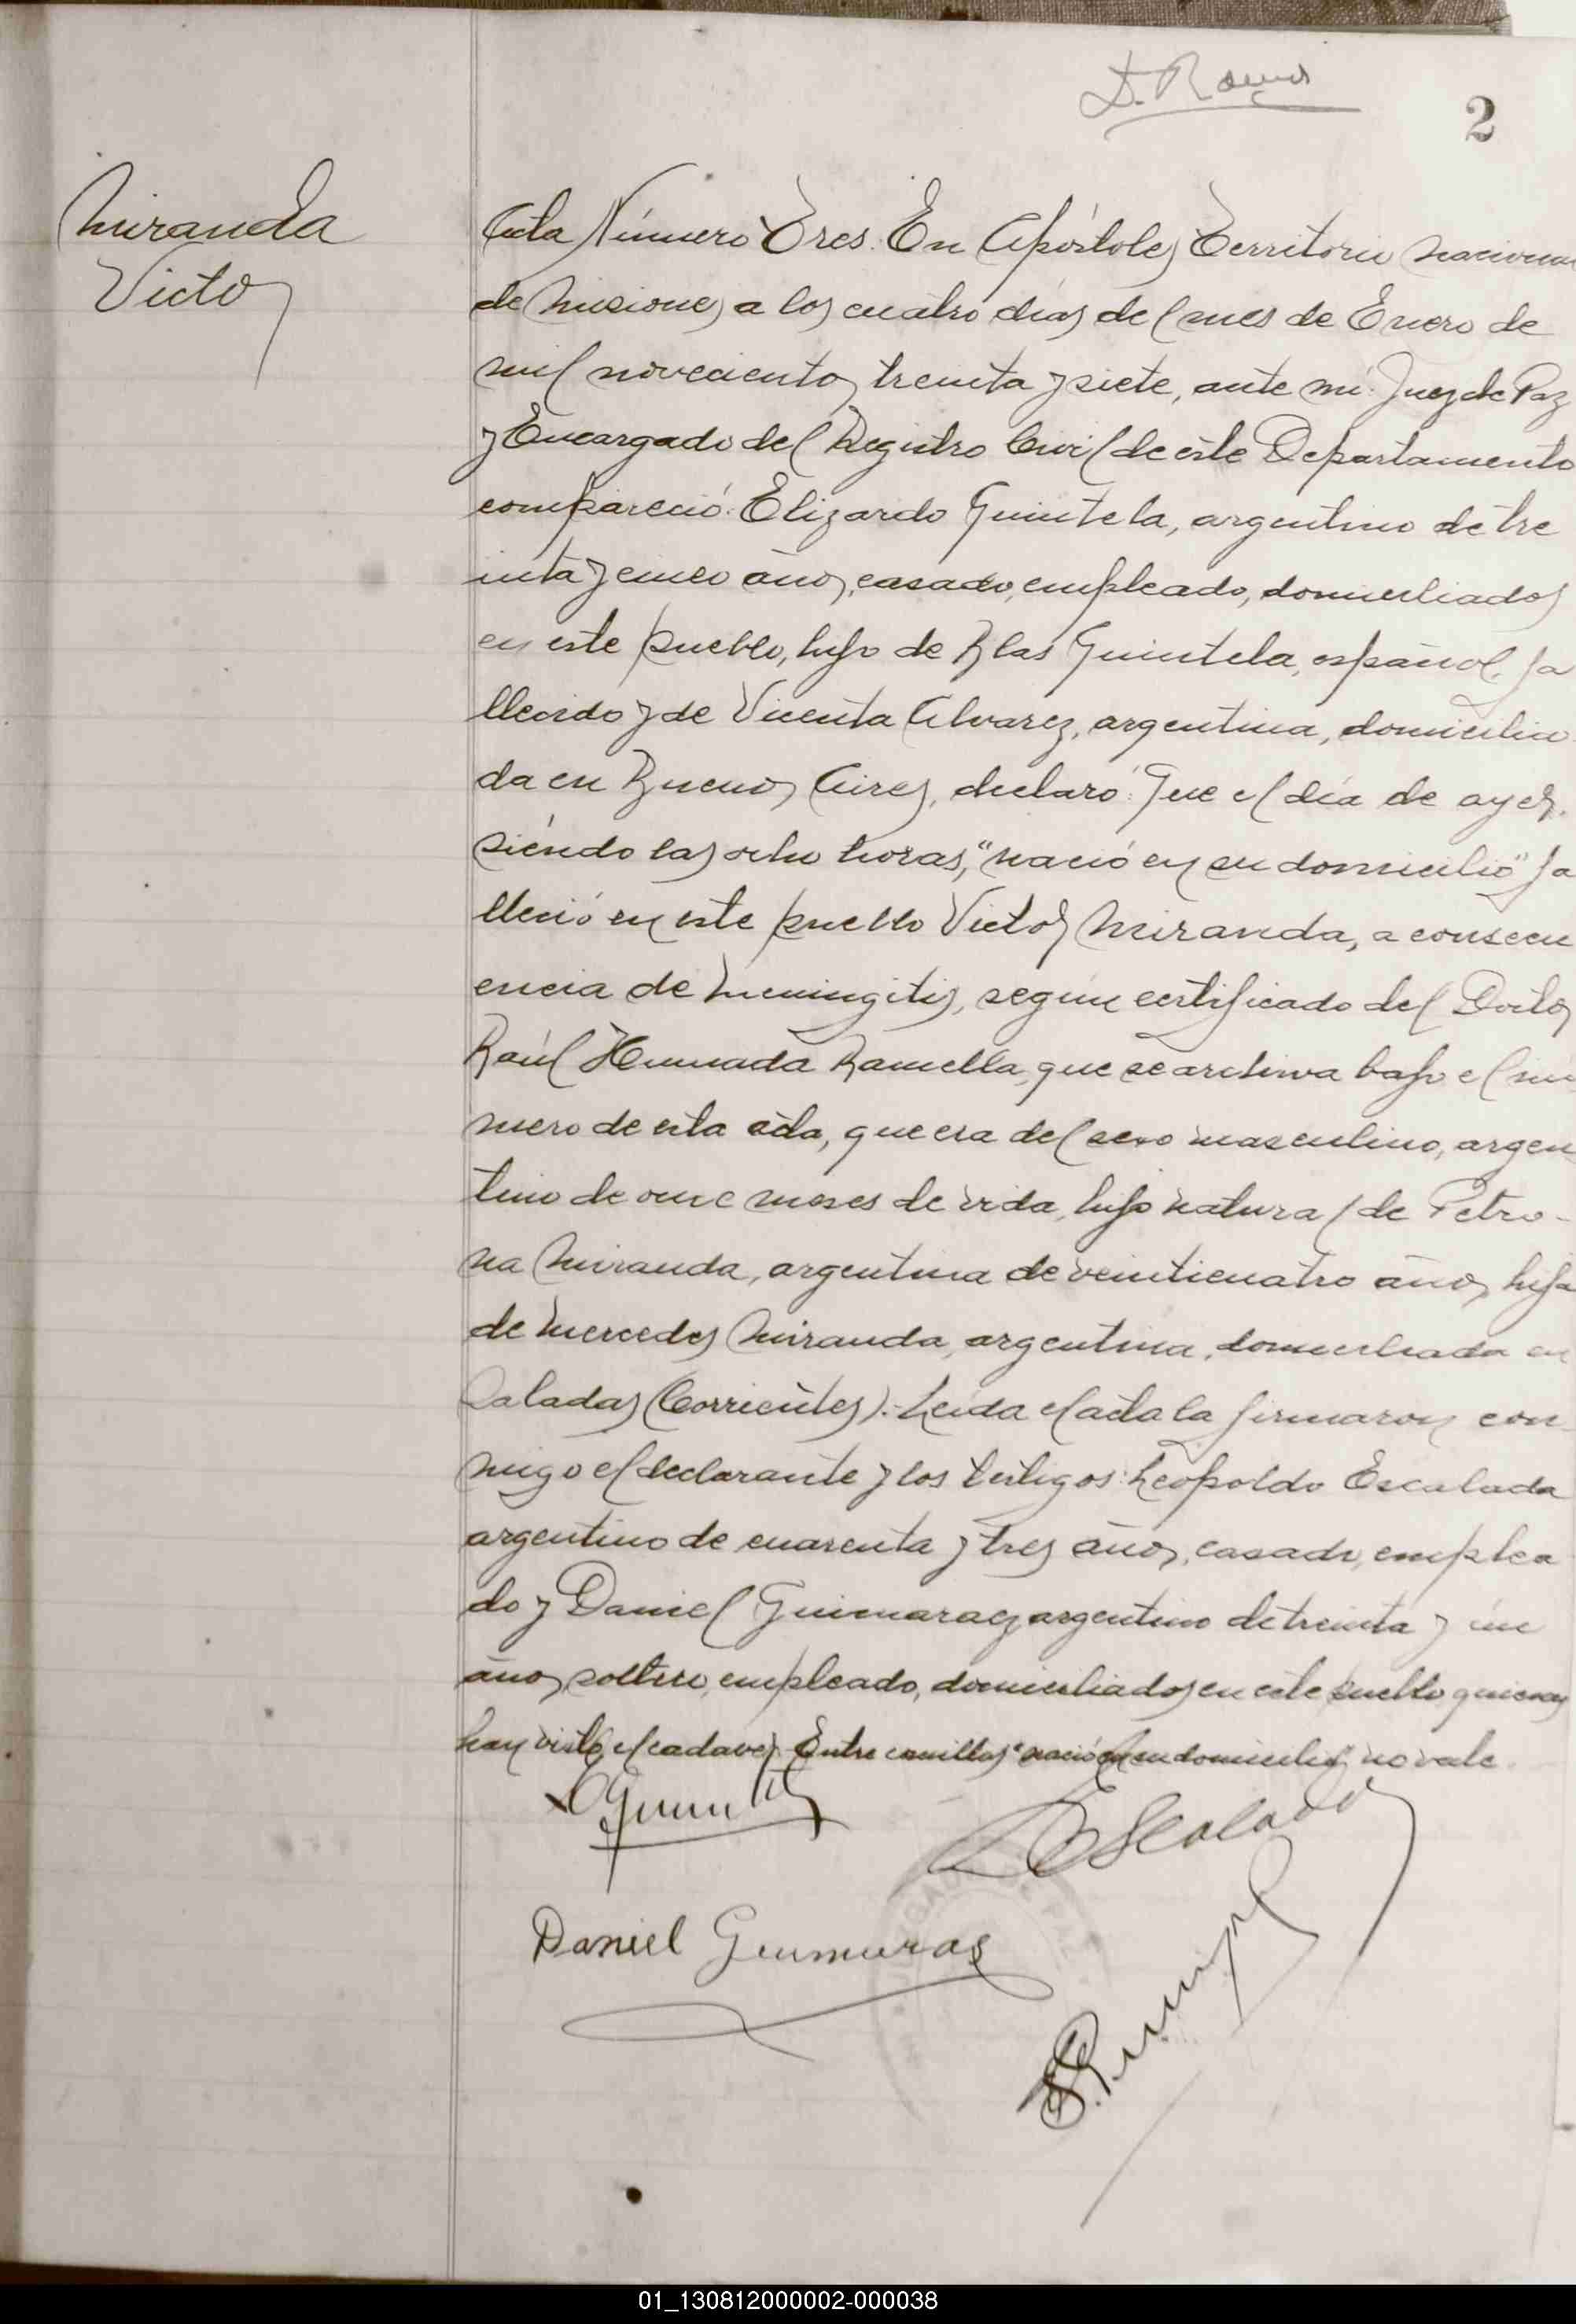 2
Miranda
Victor
Acta Número Tres. En Apóstoles Territorio nacional
de Misiones a los cuatro días del mes de Enero de
mil novecientos treinta y siete, ante mí: Juez de Paz
y Encargado del Registro Civil de este Departamento
compareció: Elizardo Quintela, argentino de tre
inta y cinco años, casado, empleado, domiciliados
en este pueblo, hijo de Blas Quintela, español, fa
llecido y de Vicenta Alvarez, argentina, domicilia
da en Buenos Aires, declaró: Que el día de ayer,
siendo las ocho horas, "nació en su domicilio" fa
lleció en este pueblo Victor Miranda, a consecu
encia de Meningitis, según certificado del Doctor
Raúl Ramella, que se archiva bajo el nú
mero de esta acta, que era del sexo masculino, argen
tino de once meses de vida, hijo natural de Petro-
na Miranda, argentina de veinticuatro años, hija
de Mercedes Miranda, argentina, domiciliada en
Saladas (Corrientes).- Leída el acta la firmaron con
migo el declarante y los testigos: Leopoldo Escalada
argentino de cuarenta y tres años, casado, emplea
do y Daniel Guimaraez argentino de treinta y un
años, soltero, empleado, domiciliados en este pueblo, quienes
han visto el cadaver. Entre comillas "nació en su domicilio" no vale.
L Escalada
Daniel Guimaras
01_130812000002-000038